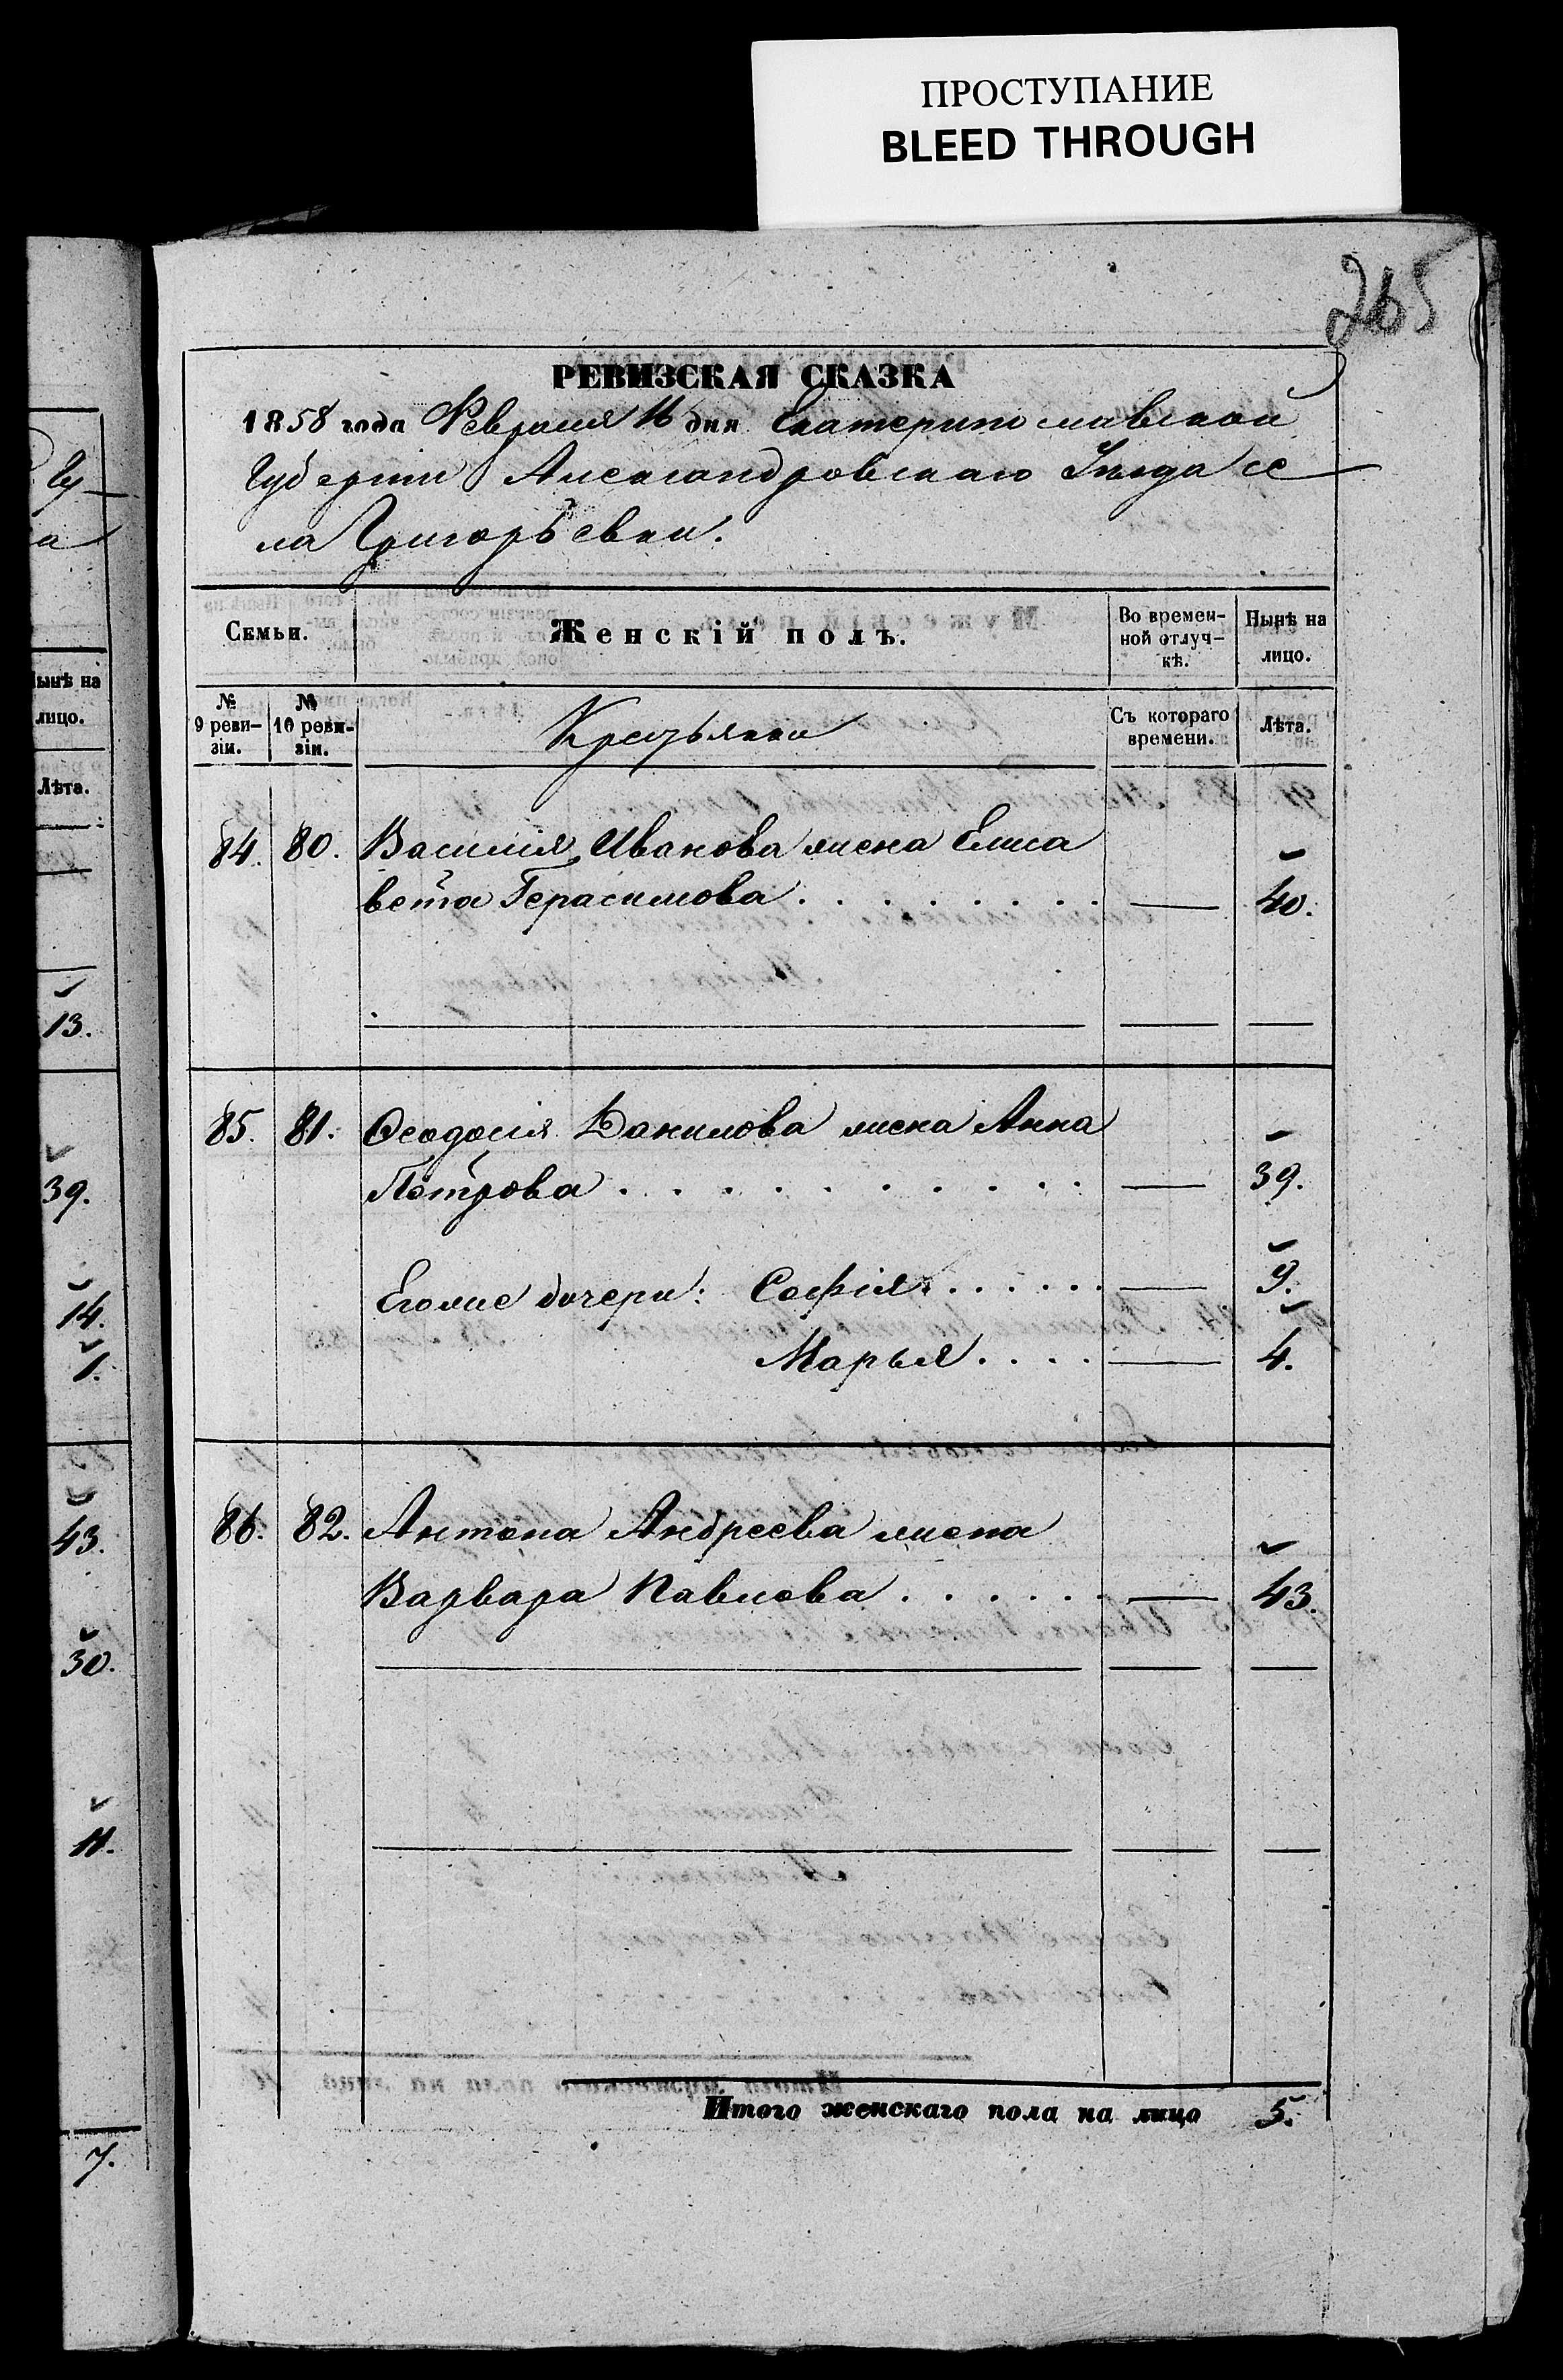 ПРОСТУПАНИЕ
BLEED THROUGH
265
РЕВИЗСКАЯ СКАЗКА
1858 года Февраля 16 дня Екатеринославской
Губернiи Александровскаго Уѣзда се
ла Григорьевки.
Семьи. Женскiй полъ. Во времен-
ной отлуч-
кѣ. Нынѣ на
лицо.
№
9 реви-
зiи. №
10 реви-
зiи. Крестьяне Съ котораго
времени. Лѣта.
84. 80. Василiя Иванова жена Елиса
вета Герасимова . . . . . . . . — 40.
85. 81. Ѳеодосiя Данилова жена Анна
Петрова . . . . . . . . . . . — 39.
Егоже дочери: Софiя . . . . . — 9.
Марья . . . . — 4.
86. 82. Антона Андреева жена
Варвара Павлова . . . . . . — 43.
Итого женскаго пола на лицо 5.
ынѣ на
лицо.
Лѣта.
13.
39.
14.
1.
43.
30.
11.
7.